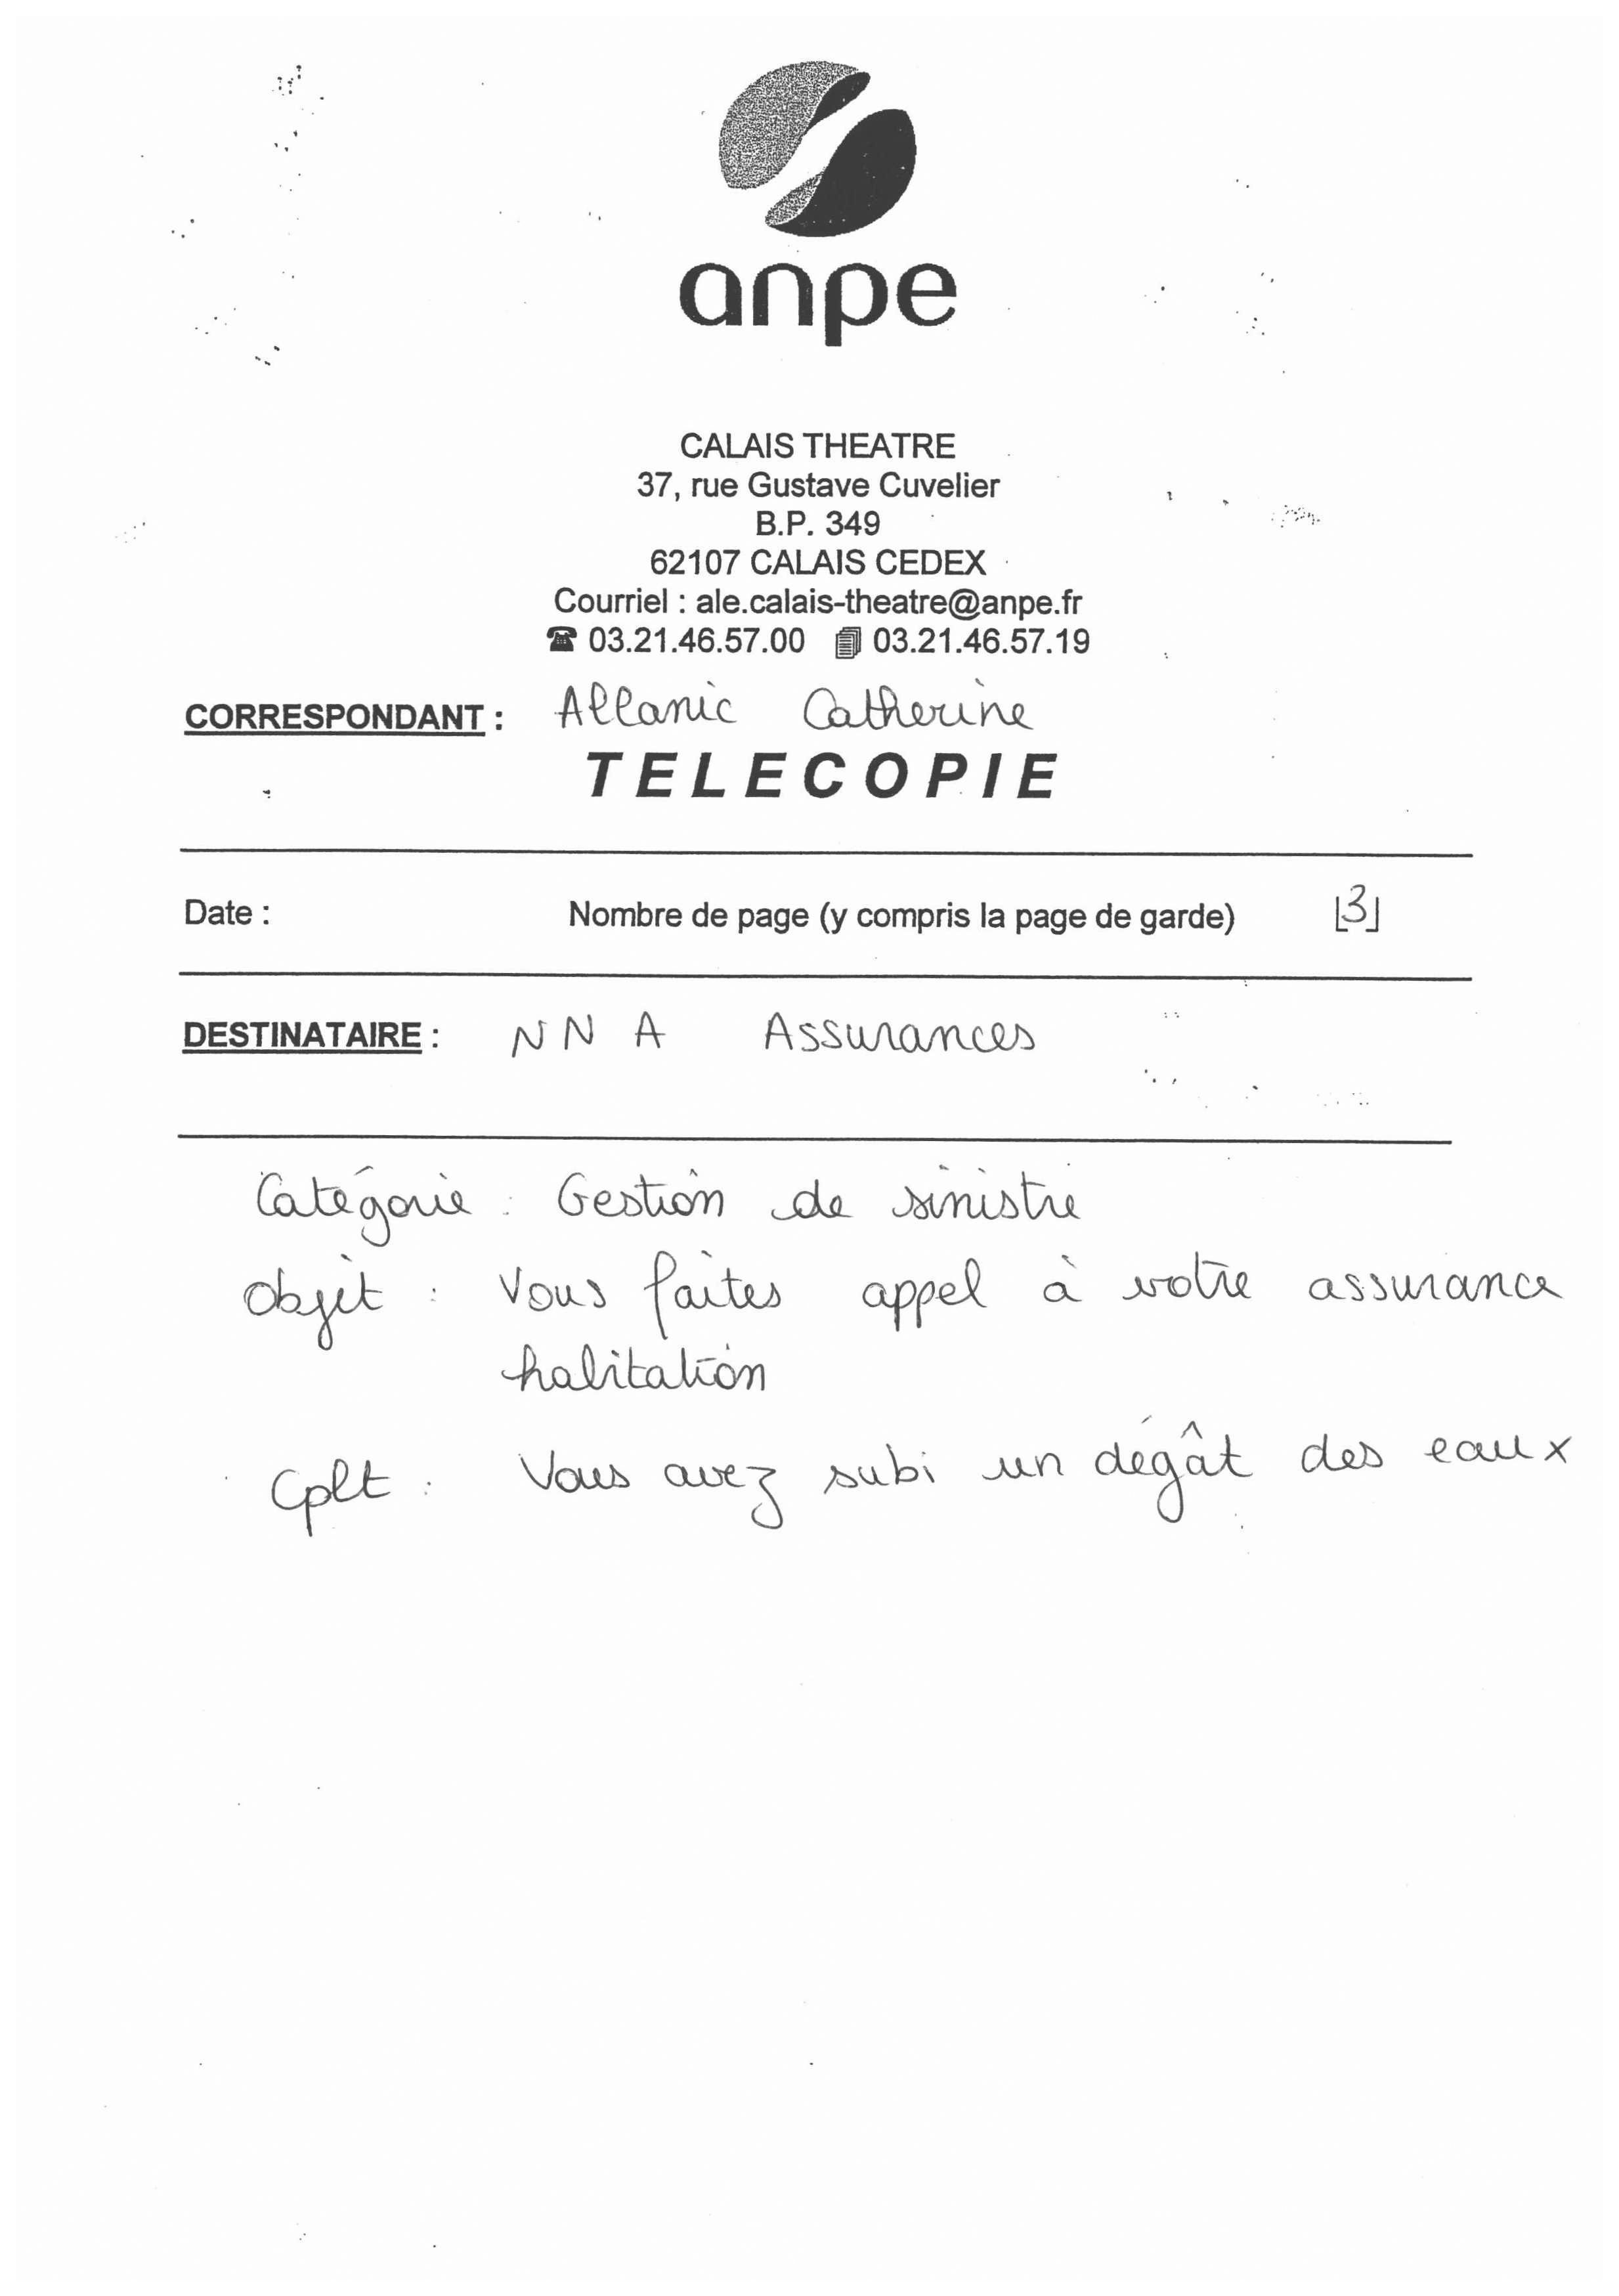 anpe
CALAIS THEATRE
37, rue Gustave Cuvelier
B.P. 349
62107 CALAIS CEDEX
Courriel : ale.calais-theatre@anpe.fr
☎ 03.21.46.57.00 03.21.46.57.19
CORRESPONDANT : Allanic Catherine
TELECOPIE
Date : Nombre de page (y compris la page de garde) |3|
DESTINATAIRE : NNA Assurances
Catégorie : Gestion de sinistre
Objet : Vous faites appel à votre assurance
habitation
Cplt : Vous avez subi un dégât des eaux